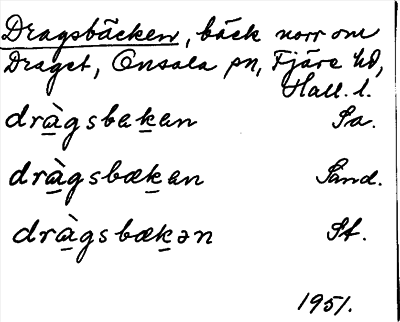 Dragsbäcken, bäck norr om
Draget, Onsala sn, Fjäre hd,
Hall. l.
dràgsbekan Sa.
dràgsbækan Sand.
dràgsbækən St.
1951.